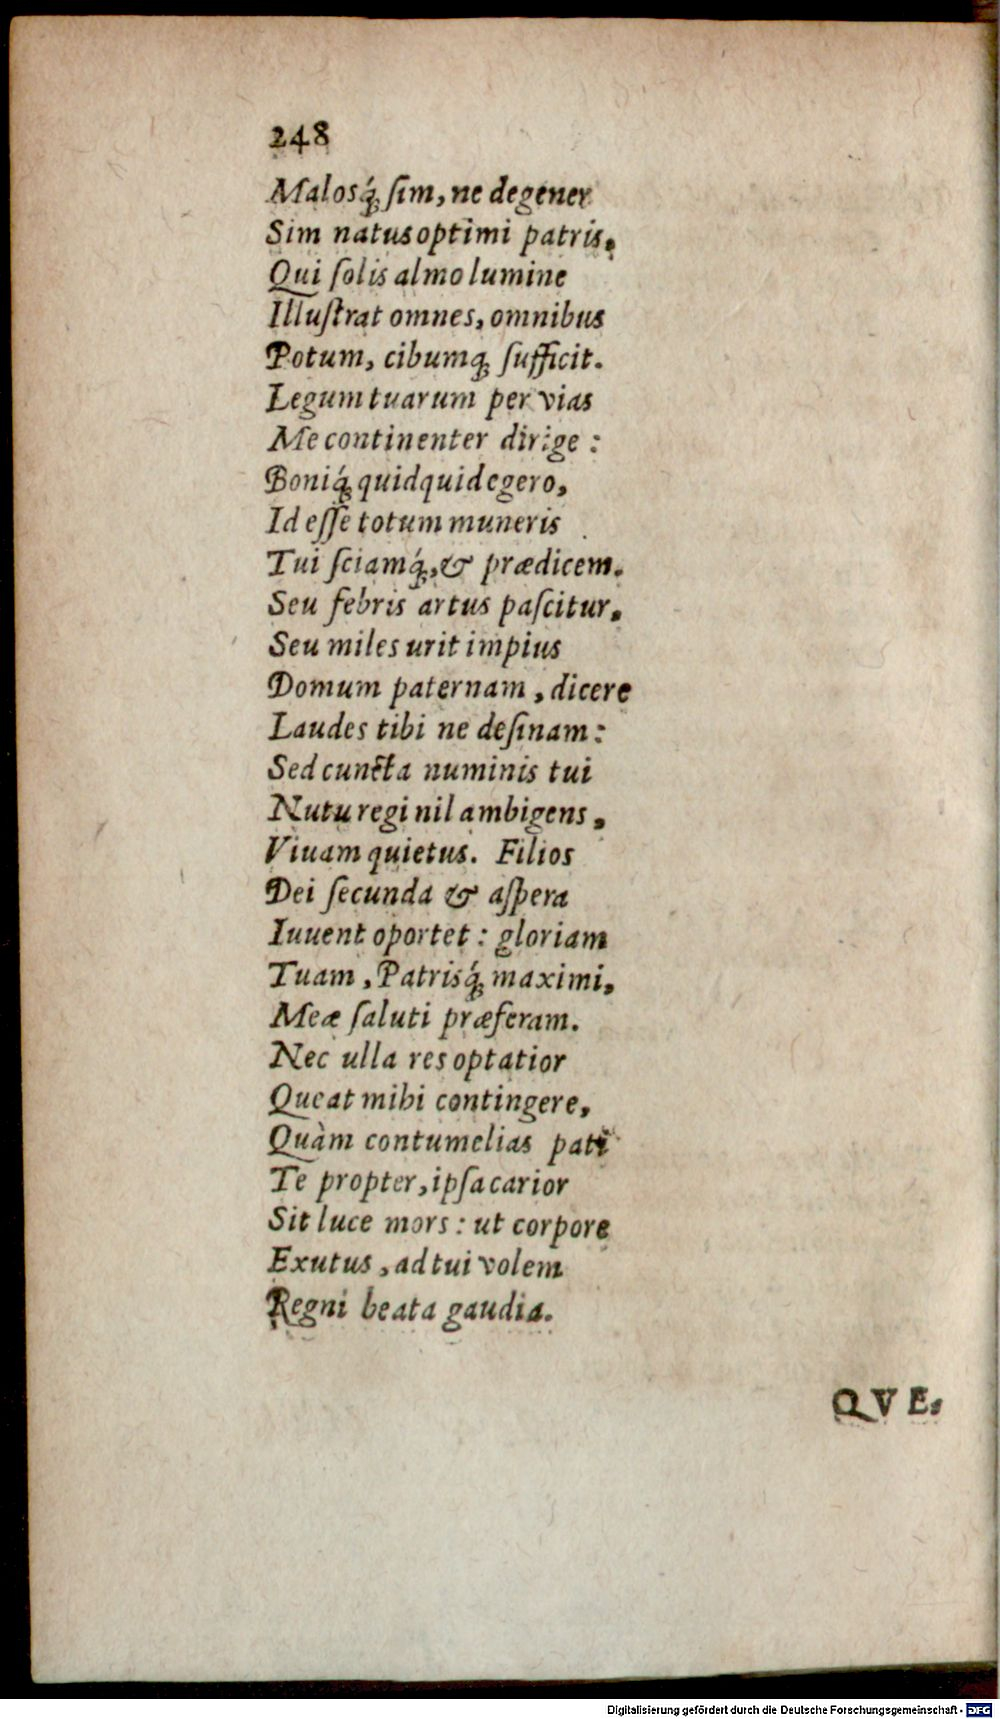 248
Malosq́; ſim, ne degener
Sim natus optimi patris,
Qui ſolis almo lumine
Illuſtrat omnes, omnibus
Potum, cibumq; ſufficit.
Legum tuarum per vias
Me continenter dirige :
Boniq́; quidquid egero,
Id eſſe totum muneris
Tui ſciamq́;, & prædicem.
Seu febris artus paſcitur,
Seu miles urit impius
Domum paternam, dicere
Laudes tibi ne deſinam :
Sed cuncta numinis tui
Nutu regi nil ambigens,
Viuam quietus. Filios
Dei ſecunda & aſpera
Iuuent oportet : gloriam
Tuam, Patrisq́; maximi,
Meæ ſaluti præferam.
Nec ulla res optatior
Queat mihi contingere,
Quàm contumelias pati
Te propter, ipſa carior
Sit luce mors : ut corpore
Exutus, ad tui volem
Regni beata gaudia.
QVE,
Digitalisierung gefördert durch die Deutsche Forschungsgemeinschaft - DFG